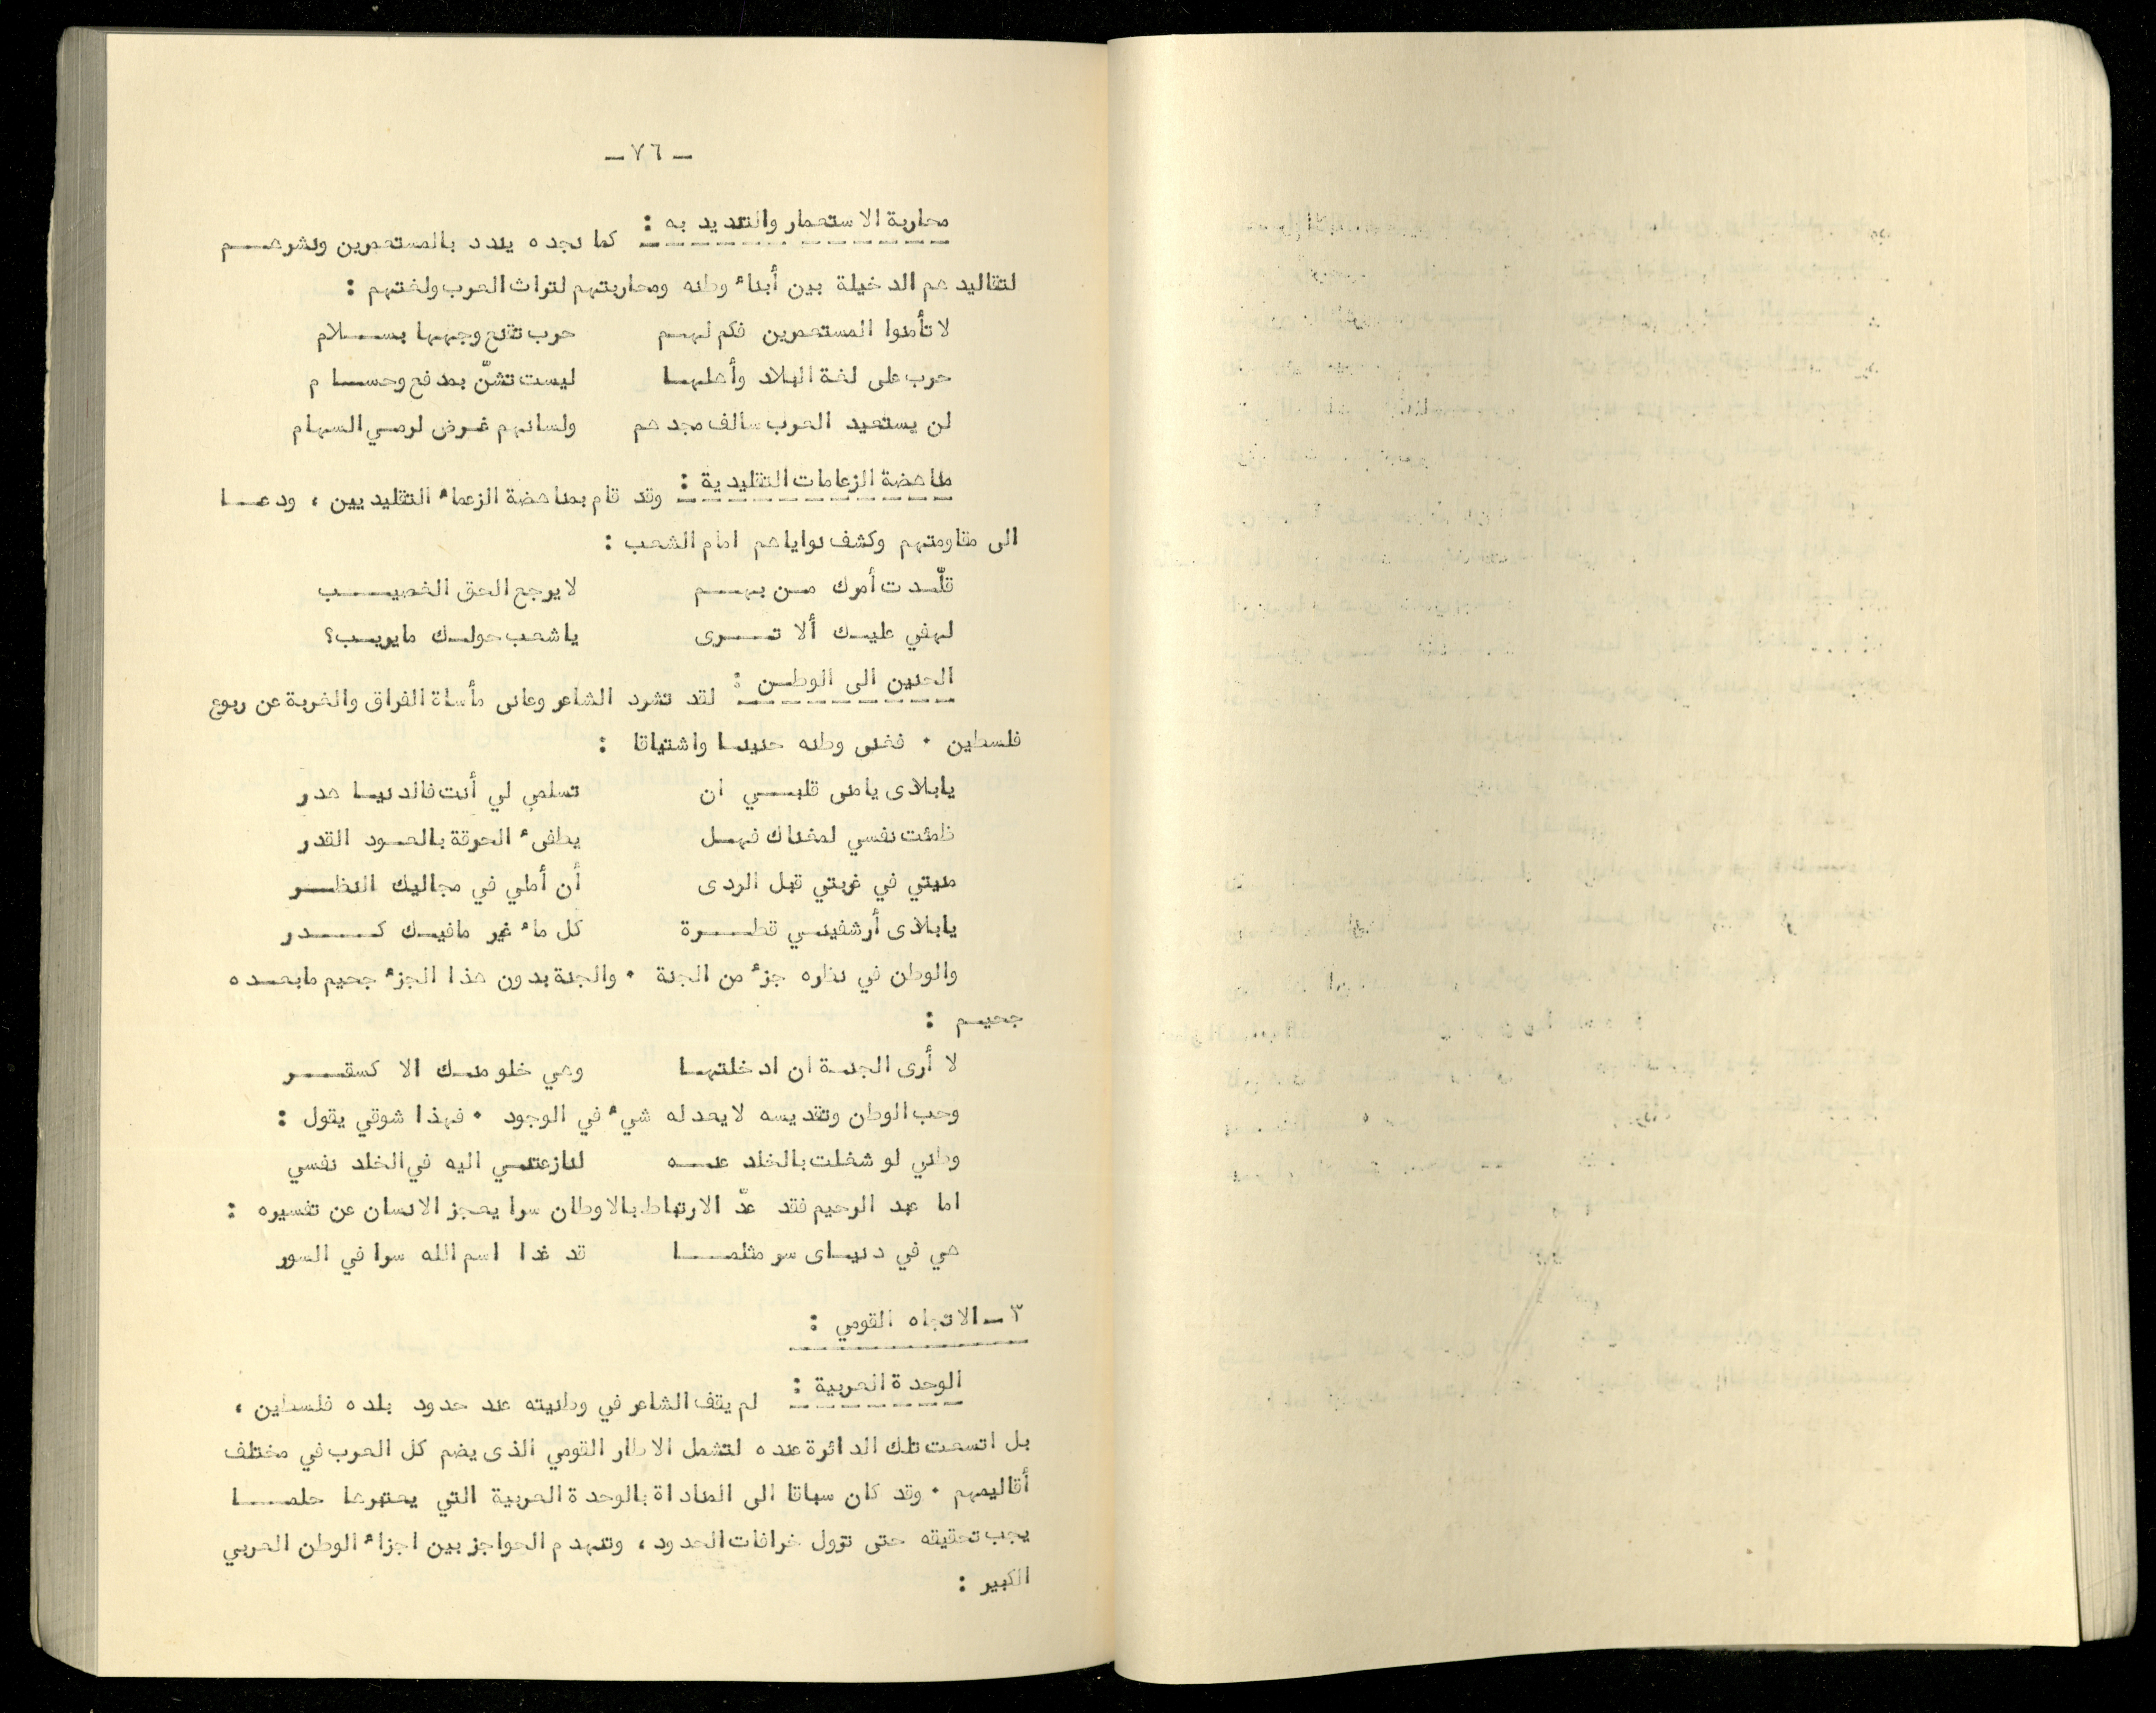 — ٧٦ —
محاربة الاستعمار والتنديد به : كما نجده يندد بالمستعمرين ونشرهم
لتقاليدهم الدخيلة بين أبناء وطنه ومحاربتهم لتراث العرب ولغتهم :
لا تأمنوا المستعمرين فكم لهم حرب تقنع وجهها بسلام
حرب على لغة البلاد وأهلها ليست تشنّ بمدفع وحسام
لن يستعيد العرب سالف مجدهم ولسانهم غرض لرمي السهام
مناهضة الزعامات التقليدية : وقد قام بمناهضة الزعماء التقليديين ، ودعا
الى مقاومتهم وكشف نواياهم امام الشعب :
قلّدت أمرك من بهم لا يرجع الحق الغصيب
لهفي عليك ألا ترى يا شعب حولك ما يريب؟
الحنين الى الوطن : لقد تشرد الشاعر وعانى مأساة الفراق والغربة عن ربوع
فلسطين ٠ فغنى وطنه حنينا واشتياقا :
يابلادى يا منى قلبي ان تسلمي لي أنت فالدنيا هدر
ظمئت نفسي لمغناك فهل يطفىء الحرقة بالعود القدر
منيتي في غربتي قبل الردى أن أملي في مجاليك النظر
يابلادى أرشفيني قطرة كل ماء غير مافيك كدر
والوطن في نظره جزء من الجنة ٠ والجنة بدون هذا الجزء جحيم مابعده
جحيم :
لا أرى الجنة ان ادخلتها وهي خلو منك الا كسقر
وحب الوطن وتقديسه لا يعدله شيء في الوجود ٠ فهذا شوقي يقول :
وطني لو شغلت بالخلد عنه لنازعتني اليه في الخلد نفسي
اما عبد الرحيم فقد عدّ الارتباط بالاوطان سرا يعجز الانسان عن تفسيره :
هي في دنياى سر مثلما قد غدا اسم الله سرا في السور
٣ — الاتجاه القومي :
الوحدة العربية : لم يقف الشاعر في وطنيته عند حدود بلده فلسطين ،
بل اتسعت تلك الدائرة عنده لتشمل الاطار القومي الذى يضم كل العرب في مختلف
أقاليمهم ٠ وقد كان سباقا الى المناداة بالوحدة العربية التي يعتبرها حلما
يجب تحقيقه حتى تزول خرافات الحدود ، وتهدم الحواجز بين اجزاء الوطن العربي
الكبير :